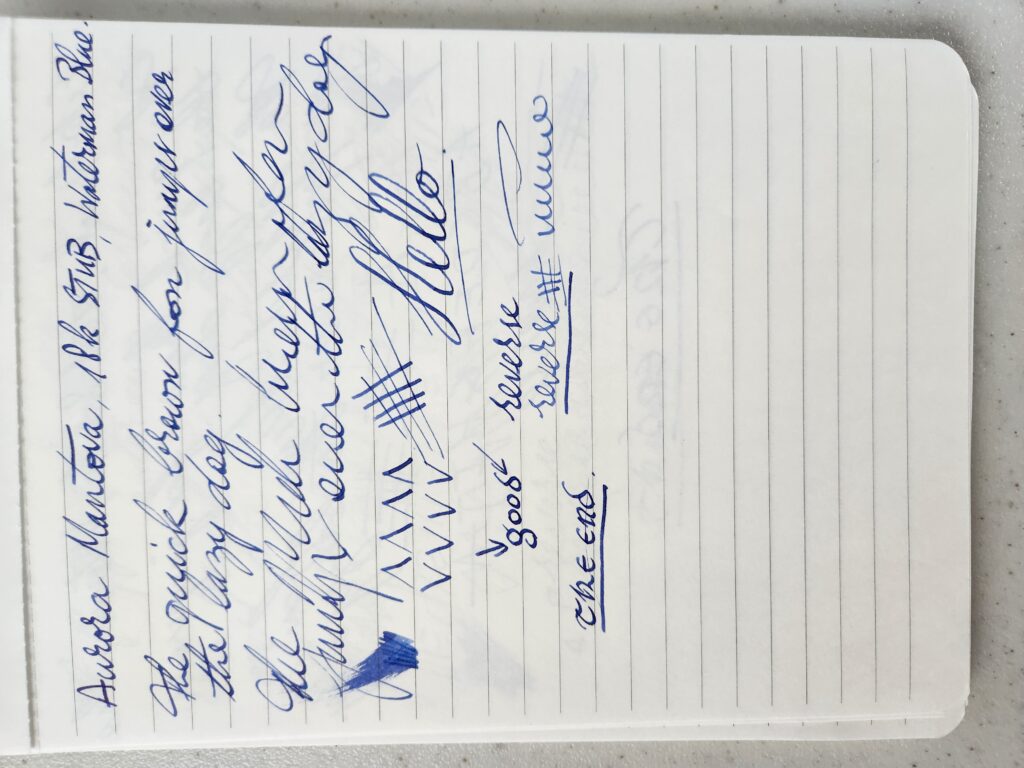 Aurora Mantova, 18k STUB, Waterman Blue
The quick brown fox jumps over
the lazy dog.
The quick brown fox
jumps over the lazy dog
Hello.
good reverse
reverse
THE END.